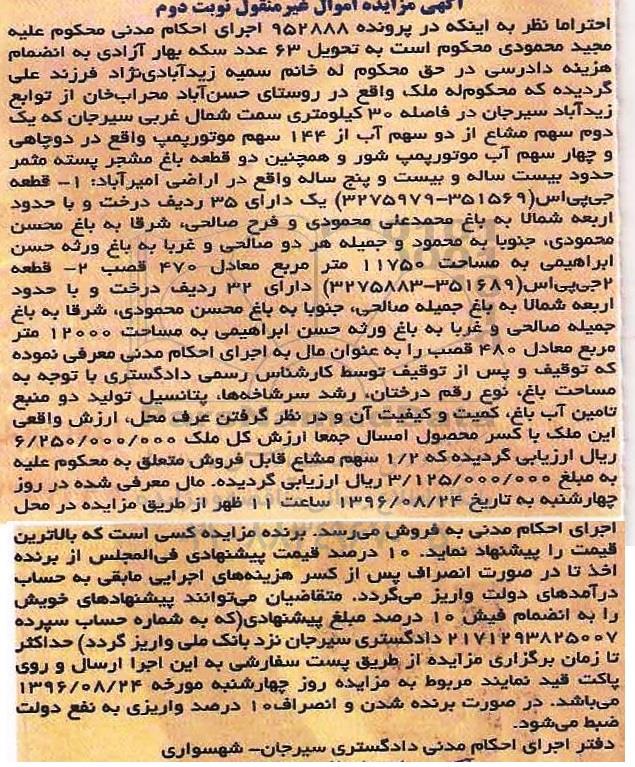 آگهی مزایده اموال غیرمنقول نوبت دوم
احتراما نظر به اینکه در پرونده ۹۵۲۸۸۸ اجرای احکام مدنی محکوم علیه
مجید محمودی محکوم است به تحویل ۶۳ عدد سکه بهار آزادی به انضمام
هزینه دادرسی در حق محکوم له خانم سمیه زیدآبادی‌نژاد فرزند علی
گردیده که محکوم‌له ملک واقع در روستای حسن‌آباد محراب‌خان از توابع
زیدآباد سیرجان در فاصله ۳۰ کیلومتری سمت شمال غربی سیرجان که یک
دوم سهم مشاع از دو سهم آب از ۱۴۴ سهم موتورپمپ واقع در دوچاهی
و چهار سهم آب موتورپمپ شور و همچنین دو قطعه باغ مشجر پسته مثمر
حدود بیست ساله و بیست و پنج ساله واقع در اراضی امیرآباد: ۱- قطعه
جی‌پی‌اس(۳۵۱۵۶۹-۳۲۷۵۹۷۹) یک دارای ۳۵ ردیف درخت و با حدود
اربعه شمالا به باغ محمدعلی محمودی و فرح صالحی، شرقا به باغ محسن
محمودی، جنوبا به محمود و جمیله هر دو صالحی و غربا به باغ ورثه حسن
ابراهیمی به مساحت ۱۱۷۵۰ متر مربع معادل ۴۷۰ قصب ۲- قطعه
۲جی‌پی‌اس(۳۵۱۶۸۹-۳۲۷۵۸۸۳) دارای ۳۲ ردیف درخت و با حدود
اربعه شمالا به باغ جمیله صالحی، جنوبا به باغ محسن محمودی، شرقا به باغ
جمیله صالحی و غربا به باغ ورثه حسن ابراهیمی به مساحت ۱۲۰۰۰ متر
مربع معادل ۴۸۰ قصب را به عنوان مال به اجرای احکام مدنی معرفی نموده
که توقیف و پس از توقیف توسط کارشناس رسمی دادگستری با توجه به
مساحت باغ، نوع رقم درختان، رشد سرشاخه‌ها، پتانسیل تولید دو منبع
تامین آب باغ، کمیت و کیفیت آن و در نظر گرفتن عرف محل، ارزش واقعی
این ملک با کسر محصول امسال جمعا ارزش کل ملک ۶/۲۵۰/۰۰۰/۰۰۰
ریال ارزیابی گردیده که ۱/۲ سهم مشاع قابل فروش متعلق به محکوم علیه
به مبلغ ۳/۱۲۵/۰۰۰/۰۰۰ ریال ارزیابی گردیده. مال معرفی شده در روز
چهارشنبه به تاریخ ۱۳۹۶/۰۸/۲۴ ساعت ۱۱ ظهر از طریق مزایده در محل
اجرای احکام مدنی به فروش می‌رسد. برنده مزایده کسی است که بالاترین
قیمت را پیشنهاد نماید. ۱۰ درصد قیمت پیشنهادی فی‌المجلس از برنده
اخذ تا در صورت انصراف پس از کسر هزینه‌های اجرایی مابقی به حساب
درآمدهای دولت واریز می‌گردد. متقاضیان می‌توانند پیشنهادهای خویش
را به انضمام فیش ۱۰ درصد مبلغ پیشنهادی(که به شماره حساب سپرده
۲۱۷۱۲۹۳۸۲۵۰۰۷ دادگستری سیرجان نزد بانک ملی واریز گردد) حداکثر
تا زمان برگزاری مزایده از طریق پست سفارشی به این اجرا ارسال و روی
پاکت قید نمایند مربوط به مزایده روز چهارشنبه مورخه ۱۳۹۶/۰۸/۲۴
می‌باشد. در صورت برنده شدن و انصراف۱۰ درصد واریزی به نفع دولت
ضبط می‌شود.
دفتر اجرای احکام مدنی دادگستری سیرجان- شهسواری